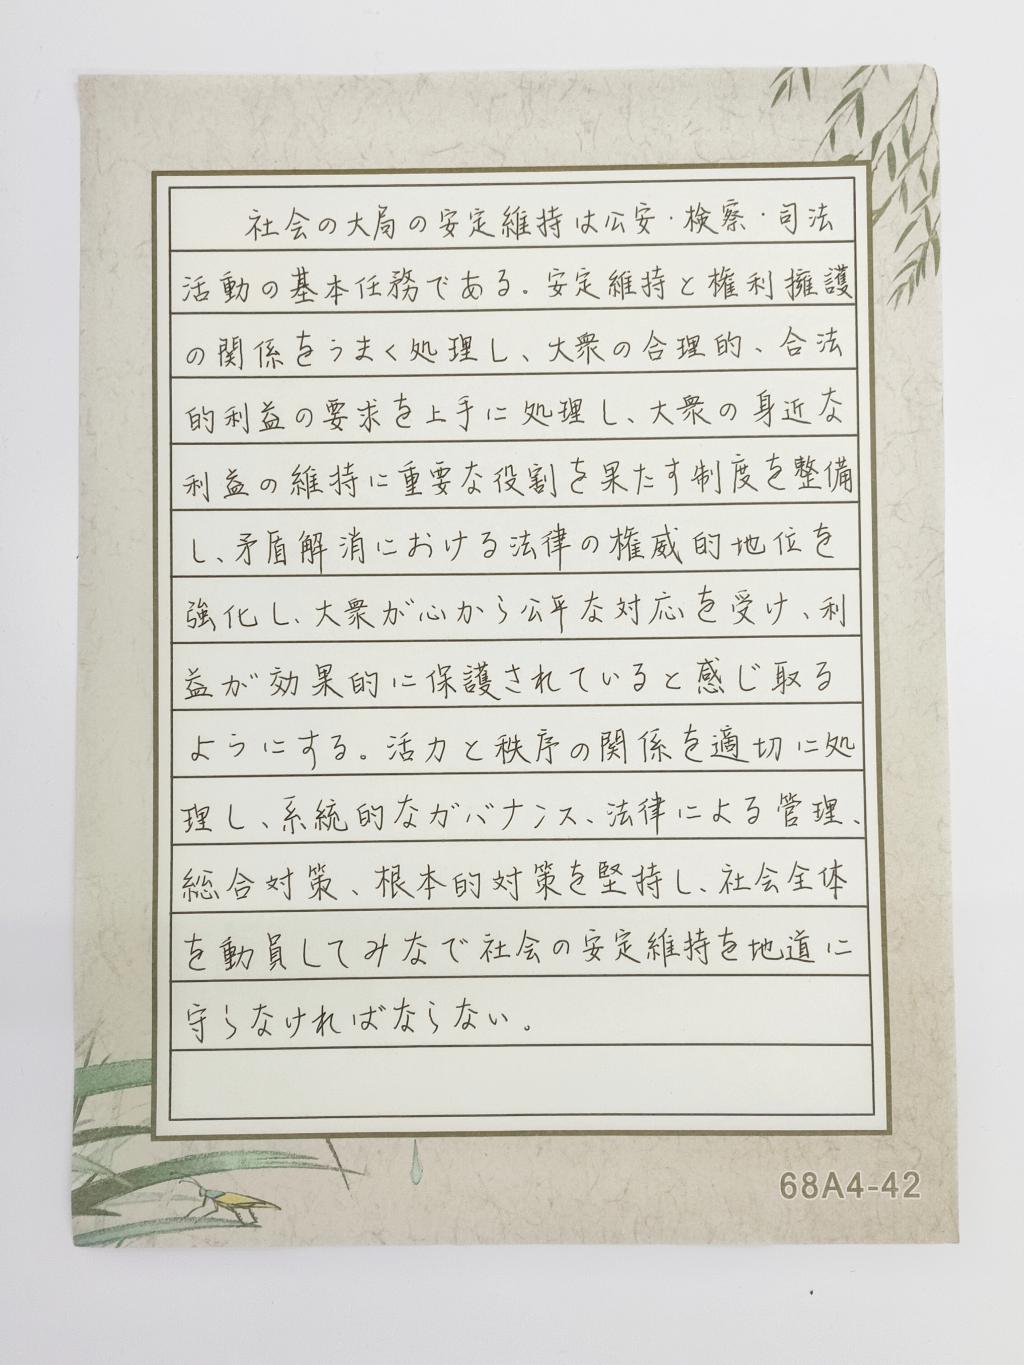 社会の大局の安定維持は公安・検察・司法
活動の基本任務である。安定維持と権利擁護
の関係をうまく処理し、大衆の合理的、合法
的利益の要求を上手に処理し、大衆の身近な
利益の維持に重要な役割を果たす制度を整備
し、矛盾解消における法律の権威的地位を
強化し、大衆が心から公平な対応を受け、利
益が効果的に保護されていると感じ取る
ようにする。活力と秩序の関係を適切に処
理し、系統的なガバナンス、法律による管理、
総合対策、根本的対策を堅持し、社会全体
を動員してみなで社会の安定維持を地道に
守らなければならない。
68A4-42